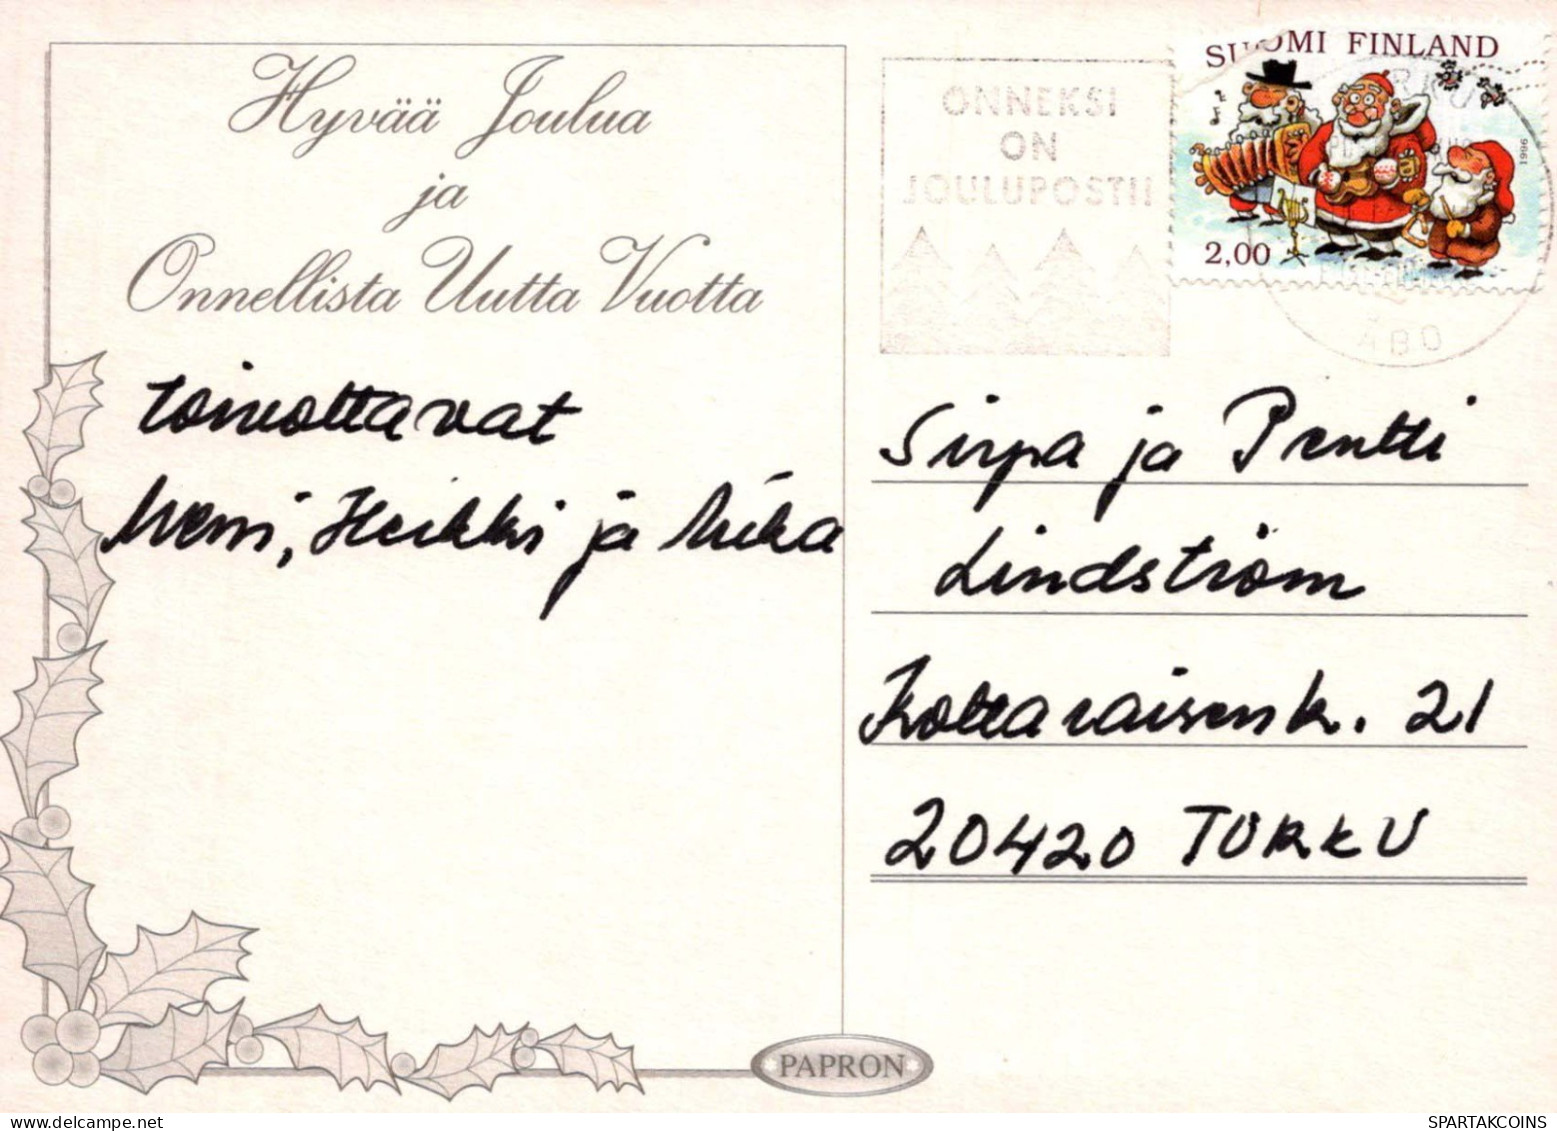 Hyvää Joulua
ja
Onnellista Uutta Vuotta
toivottavat
Heikki ja Mika
PAPRON
ONNEKSI
ON
JOULUPOSTI!
SUOMI FINLAND
1996
2,00
TURKU
ÅBO
Sirpa ja Pentti
Lindström
21
20420 TURKU
SPARTAKCOINS